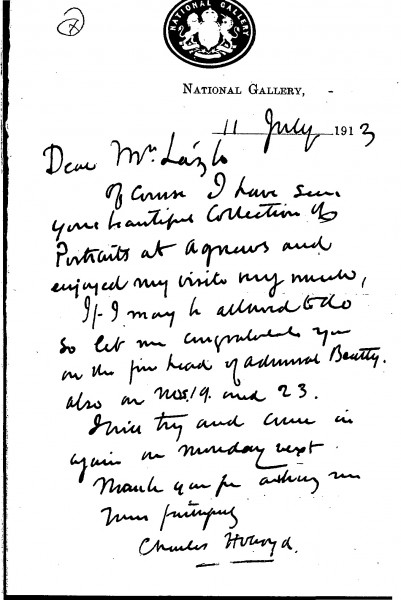 NATIONAL GALLERY
NATIONAL GALLERY,
11 July 1913
Dear Mr. László
Of course I have seen
your beautiful Collection of
Portraits at Agnews and
enjoyed my visits very much,
If I may be allowed to do
so let me congratulate you
on the fine head of Admiral Beatty.
also on Nos. 19. and 23.
I will try and come in
again on Monday next
Thank you for asking me
Yours faithfully
Charles Holroyd.